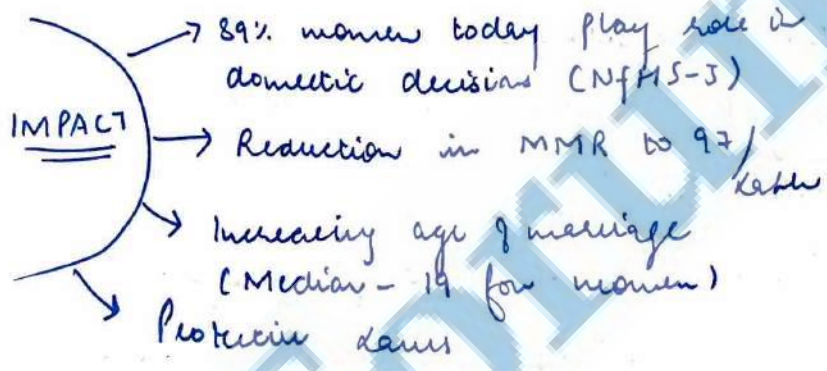 IMPACT
→ 89% women today play role in
domestic decisions (NFHS-5)
→ Reduction in MMR to 97/
lakh
→ Increasing age of marriage
(Median - 19 for women)
→ Protective Laws